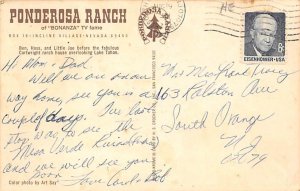 PONDEROSA RANCH
of "BONANZA" TV fame
BOX 10 · INCLINE VILLAGE · NEVADA 89450
Ben, Hoss, and Little Joe before the fabulous
Cartwright ranch house overlooking Lake Tahoe.
Hi Mom + Dad
Well we are now
way home, see you in a
couple days. I've
stop was to see the
Mesa Verde Ruins
and we will see you
soon
Love
Bob
Color photo by Art Say
PONDEROSA RANCH
EISENHOWER · USA
8c
Mr + Mrs Frank
163 Ralston Ave
South Orange
N.J.